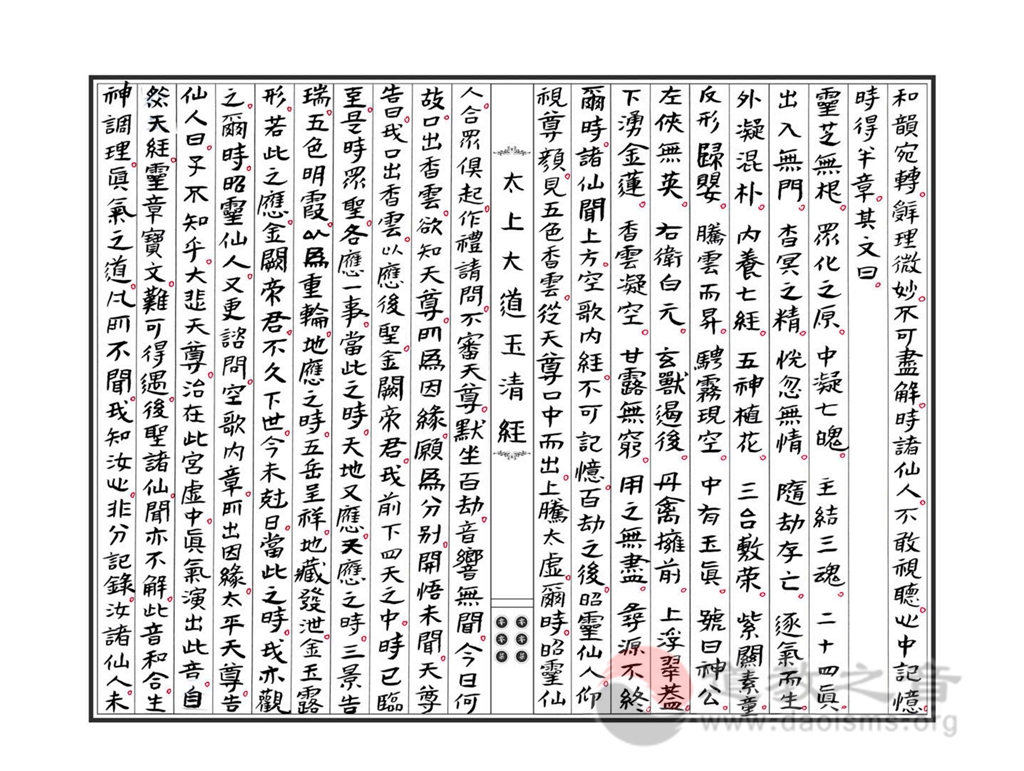 和韻宛轉。解理微妙。不可盡解。時諸仙人。不敢視聽。心中記憶。
時得半章。其文曰。
靈芝無根。眾化之原。中凝七魄。主結三魂。二十四眞。
出入無門。杳冥之精。恍忽無情。隨劫存亡。逐氣而生。
外凝混朴。内養七經。五神植花。三台敷荣。紫關素童。
反形歸嬰。騰雲而昇。騁霧現空。中有玉眞。號曰神公。
左俠無英。右衛白元。玄獸遏後。丹禽擁前。上浮翠蓋。
下湧金蓮。香雲凝空。甘露無窮。用之無盡。尋源不終。
爾時。諸仙聞上方空歌内經。不可記憶。百劫之後。昭靈仙人。仰
視尊顏。見五色香雲。從天尊口中而出。上騰太虛。爾時。昭靈仙
太上大道玉清經
人合眾俱起作禮。請問。不審天尊。默坐百劫。音響無聞。今日何
故。口出香雲。欲知天尊所爲因緣。願爲分别。開悟未聞。天尊
告曰。我口出香雲。以應後聖金闕帝君。我前下四天之中。時已臨
至。是時眾聖。各應一事。當此之時。天地又應。天應之時。三景告
瑞。五色明霞。以爲重輪。地應之時。五岳呈祥。地藏發泄。金玉露
形。若此之應。金闕帝君。不久下世。今未尅日。當此之時。我亦觀
之。爾時。昭靈仙人。又更諮問空歌内章。所出因緣。太平天尊。告
仙人曰。子不知乎。大悲天尊。治在此宮。虛中眞氣。演出此音。自
然天經。靈章寶文。難可得遇。後聖諸仙。聞亦不解。此音和合。生
神調理。眞氣之道。凡所不聞。我知汝心。非分記錄。汝諸仙人。未
道教之音
www.daoisms.org